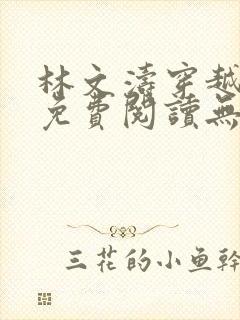 林文濤穿越
免費閱讀無
三花的小鱼幹